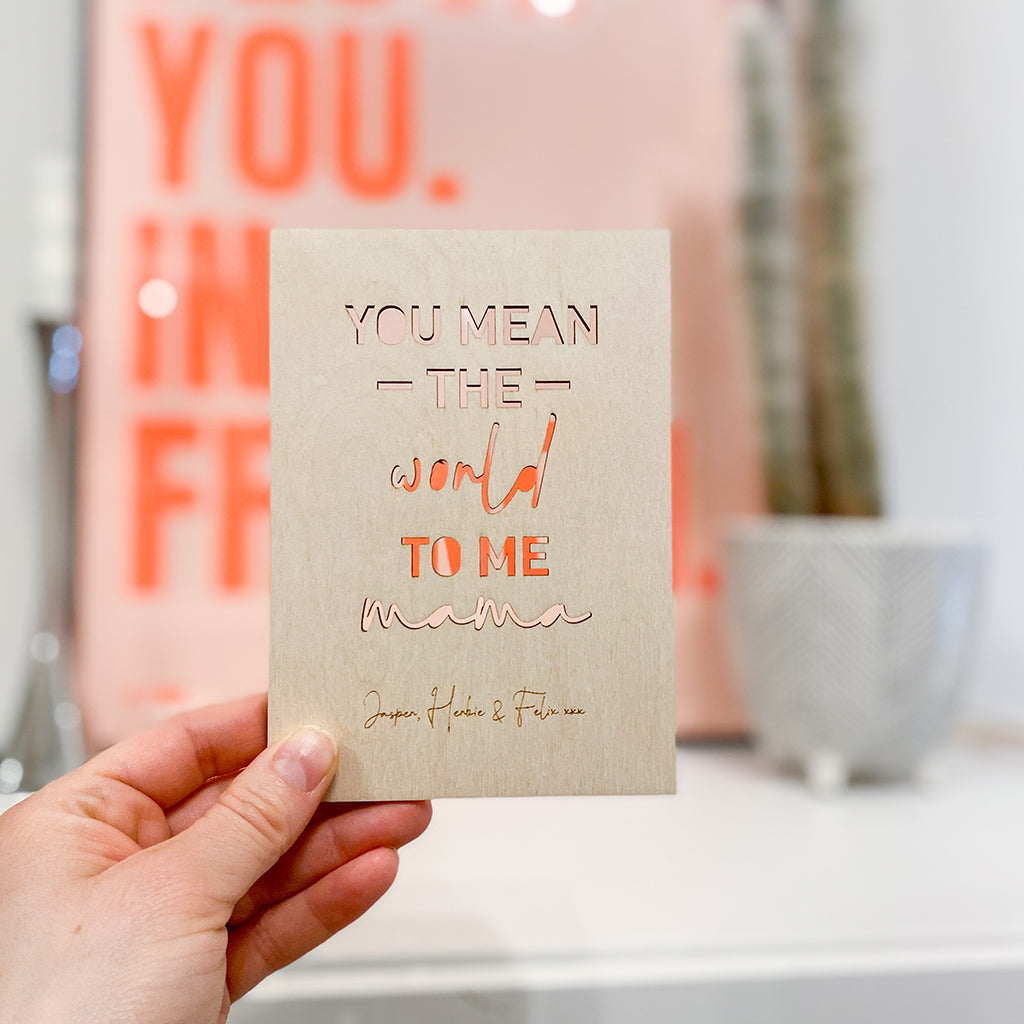 YOU.
YOU MEAN
— THE —
world
TO ME
mama
Jasper, Herbie & Felix xxx